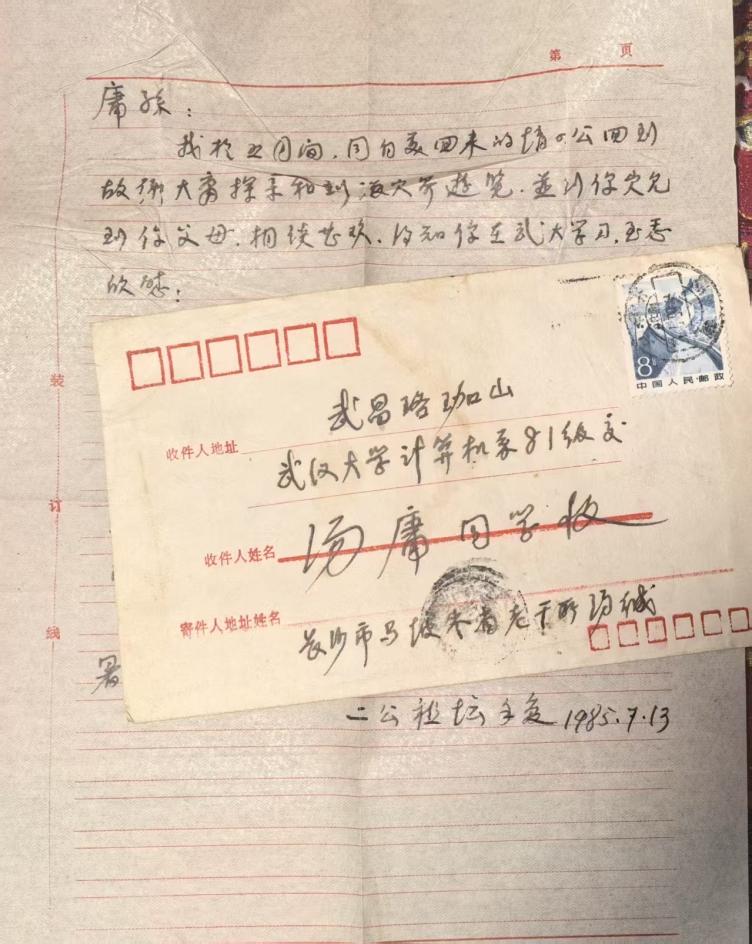 第 页
庸孙：
我于五月间，同自美回来的晴口公回到
故乡大庸探亲和到张家界游览，並到你家见
到你父母，相续甚欢，得知你在武大学习，至悉
欣慰：
8分
中国人民邮政
收件人地址 武昌珞珈山
武汉大学计算机系81级交
收件人姓名 汤庸同学收
寄件人地址姓名 长沙市马坡岭省老干所
装
订
线
暑
二公祖坛手复 1985.7.13